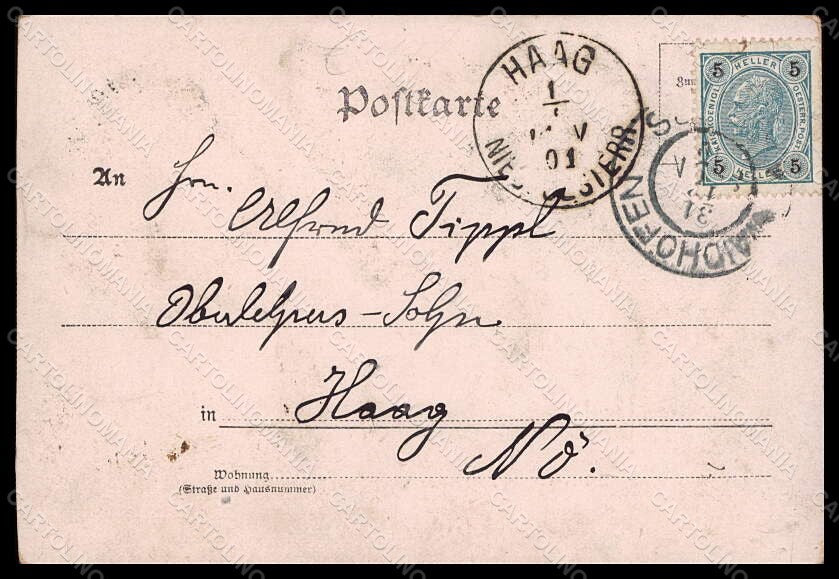 Postkarte
HAAG
1
V
01
NIED. OESTERR.
5 HELLER 5
KAIS. KOENIGL. OESTERR. POST
5 HELLER 5
WAIDHOFEN
31
An Hrn.
Alfred Tippl
Oberlehrers-Sohn
in Haag
Nö.
Wohnung
(Straße und Hausnummer)
CARTOLINOMANIA